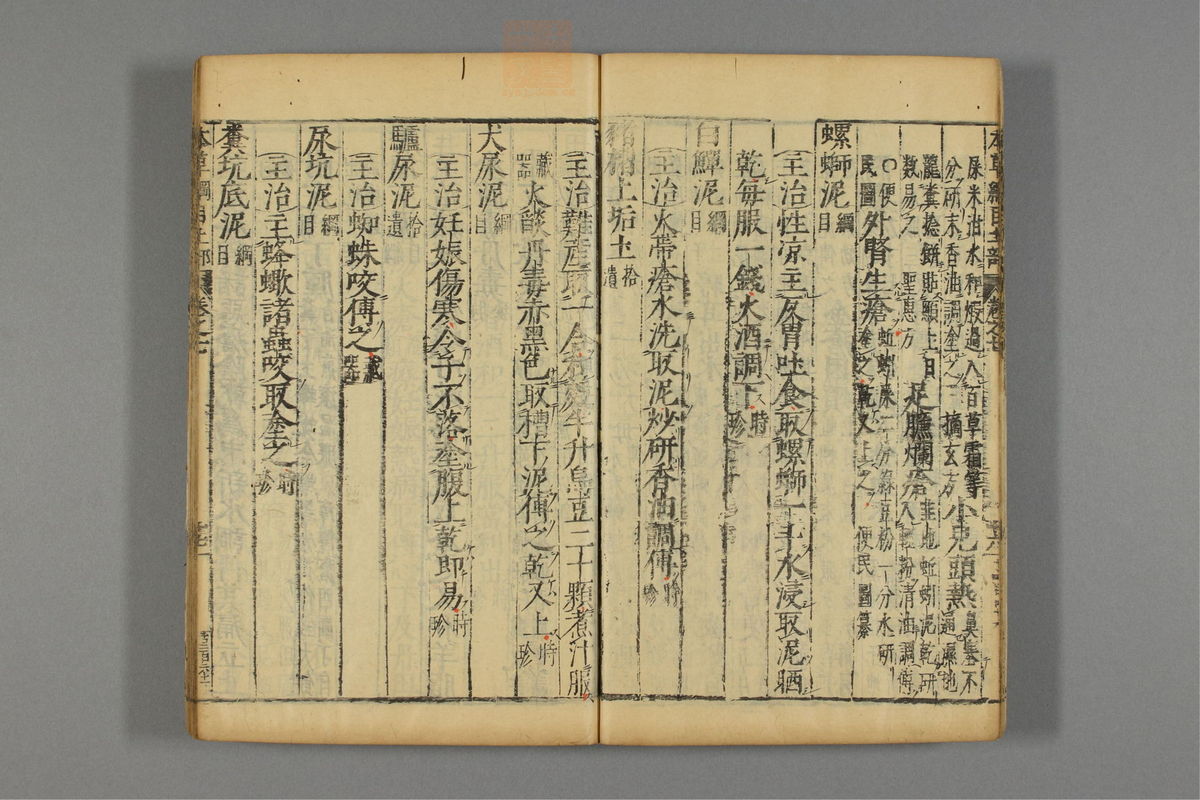 本草綱目土部 卷之七
尿米泔水和煆過入百草霜等
分研末香油調塗之 摘玄方 小兒頭熱 鼻塞不通濕地
龍糞捻餅貼顖上日數易之 聖惠方 足臁爛瘡 韭地蚯蚓泥乾研入輕粉清油調傅
○便民圖 外腎生瘡 蚯蚓屎二分綠豆粉一分水研塗之乾又上之 便民圖纂
螺螄泥 綱目
主治性凉主反胃吐食取螺螄一斗水浸取泥晒
乾每服一錢火酒調下 時珍
白鱓泥 綱目
主治火帶瘡水洗取泥炒研香油調傅 時珍
豬槽上垢土 拾遺
主治難產取一合和麪半升烏豆二十顆煮汁服
藏器 火燄丹毒赤黑色取槽下泥傅之乾又上 時珍
犬尿泥 綱目
主治妊娠傷寒令子不落塗腹上乾即易 時珍
驢尿泥 拾遺
主治蜘蛛咬傅之 藏器
尿坑泥 綱目
主治主蜂蠍諸蟲咬取塗之 時珍
糞坑底泥 綱目
本草綱目土部 卷之七